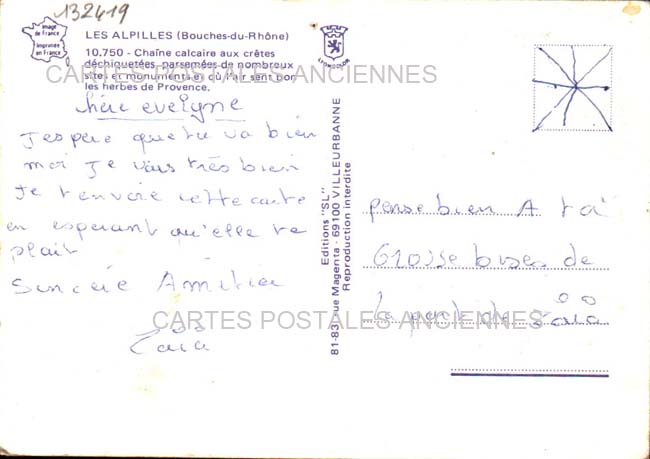 132419
Image
de France
Imprimée
en France
LES ALPILLES (Bouches-du-Rhône)
10.750 - Chaîne calcaire aux crêtes
déchiquetées, parsemées de nombreux
sites et monuments et où l'air sent bon
les herbes de Provence.
CARTES POSTALES ANCIENNES
LYONCOLOR
chére evelyne
J'espère que tu va bien
moi je vais très bien
Je t'envoie cette carte
en esperant qu'elle te
plait
Sincère Amitier
Zaïa
Editions "SL"
81-83, rue Magenta - 69100 VILLEURBANNE
Reproduction interdite
pense bien A toi
Grosse bises de
la part de
CARTES POSTALES ANCIENNES